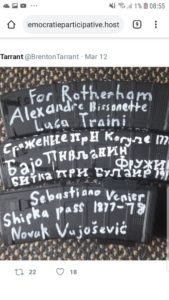 08:55
emocratieparticipative.host
3
Tarrant @BrentonTarrant · Mar 12
For Rotherham
Alexandre Bissonette
Luca Traini
Сражение при Кагуле 177
Бајо Пивљанин Фружи
Битка при Булаир
Sebastiano Venier
Shipka pass 1877-78
Novak Vujošević
22 18